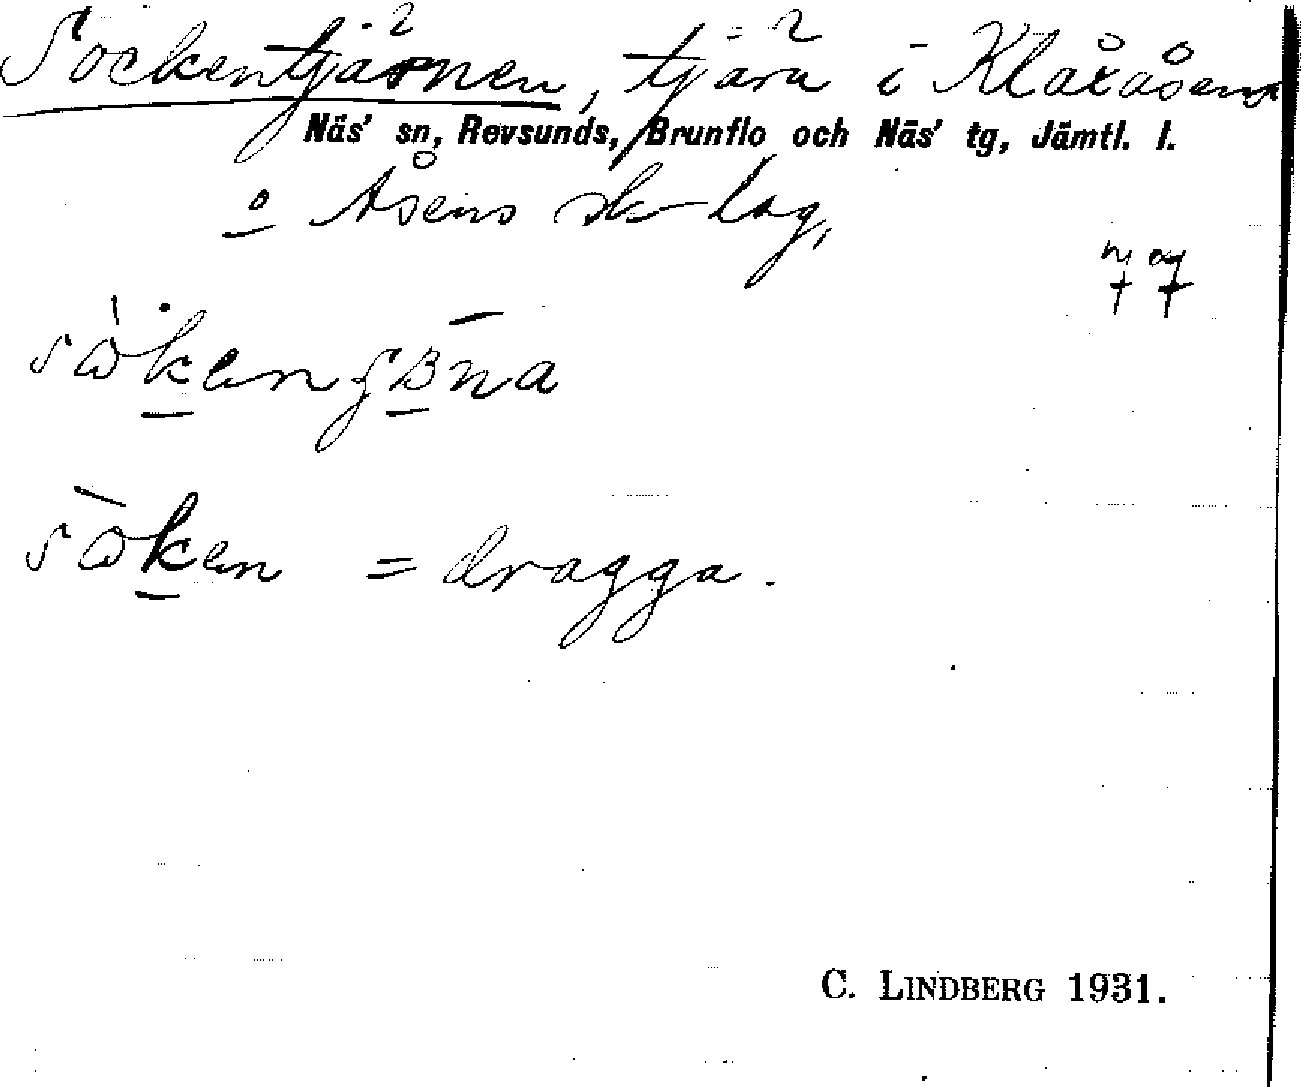 Sockentjärnen, tjärn i Klaxåsens
Näs' sn, Revsunds, Brunflo och Näs' tg, Jämtl. l.
o Åsens sk lag,
77
sökən
sökən = dragga.
C. LINDBERG 1931.